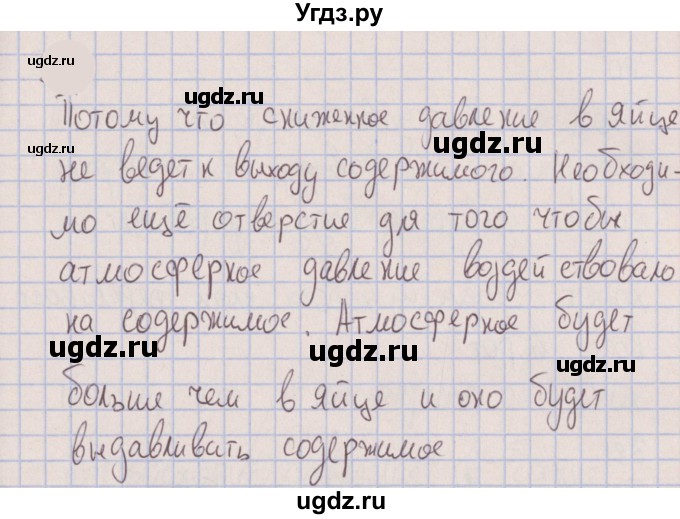 Угдз.ру
ugdz.ru
ugdz.ru
Потому что сниженное давление в яйце
ugdz.ru
ugdz.ru
не ведет к выходу содержимого. Необходи-
мо ещё отверстие для того чтобы
ugdz.ru
ugdz.ru
атмосферное давление воздействовало
на содержимое. Атмосферное будет
ugdz.ru
ugdz.ru
ugdz.ru
больше чем в яйце и оно будет
выдавливать содержимое
ugdz.ru
ugdz.ru